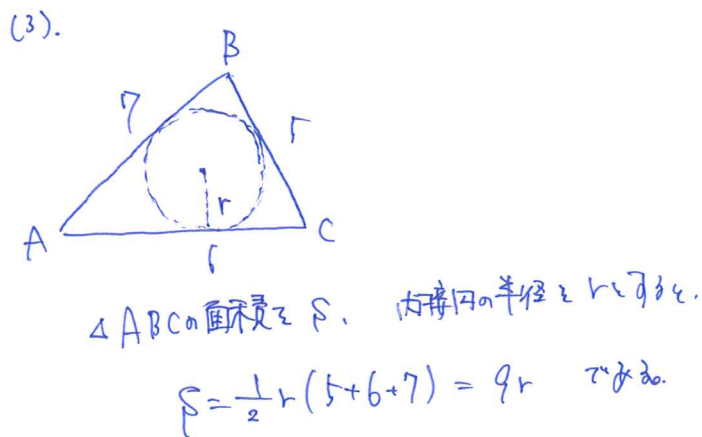 (3).
B
7
5
r
A
C
6
△ABCの面積を S、 内接円の半径を rとすると、
S=1/2 r(5+6+7) = 9r である。